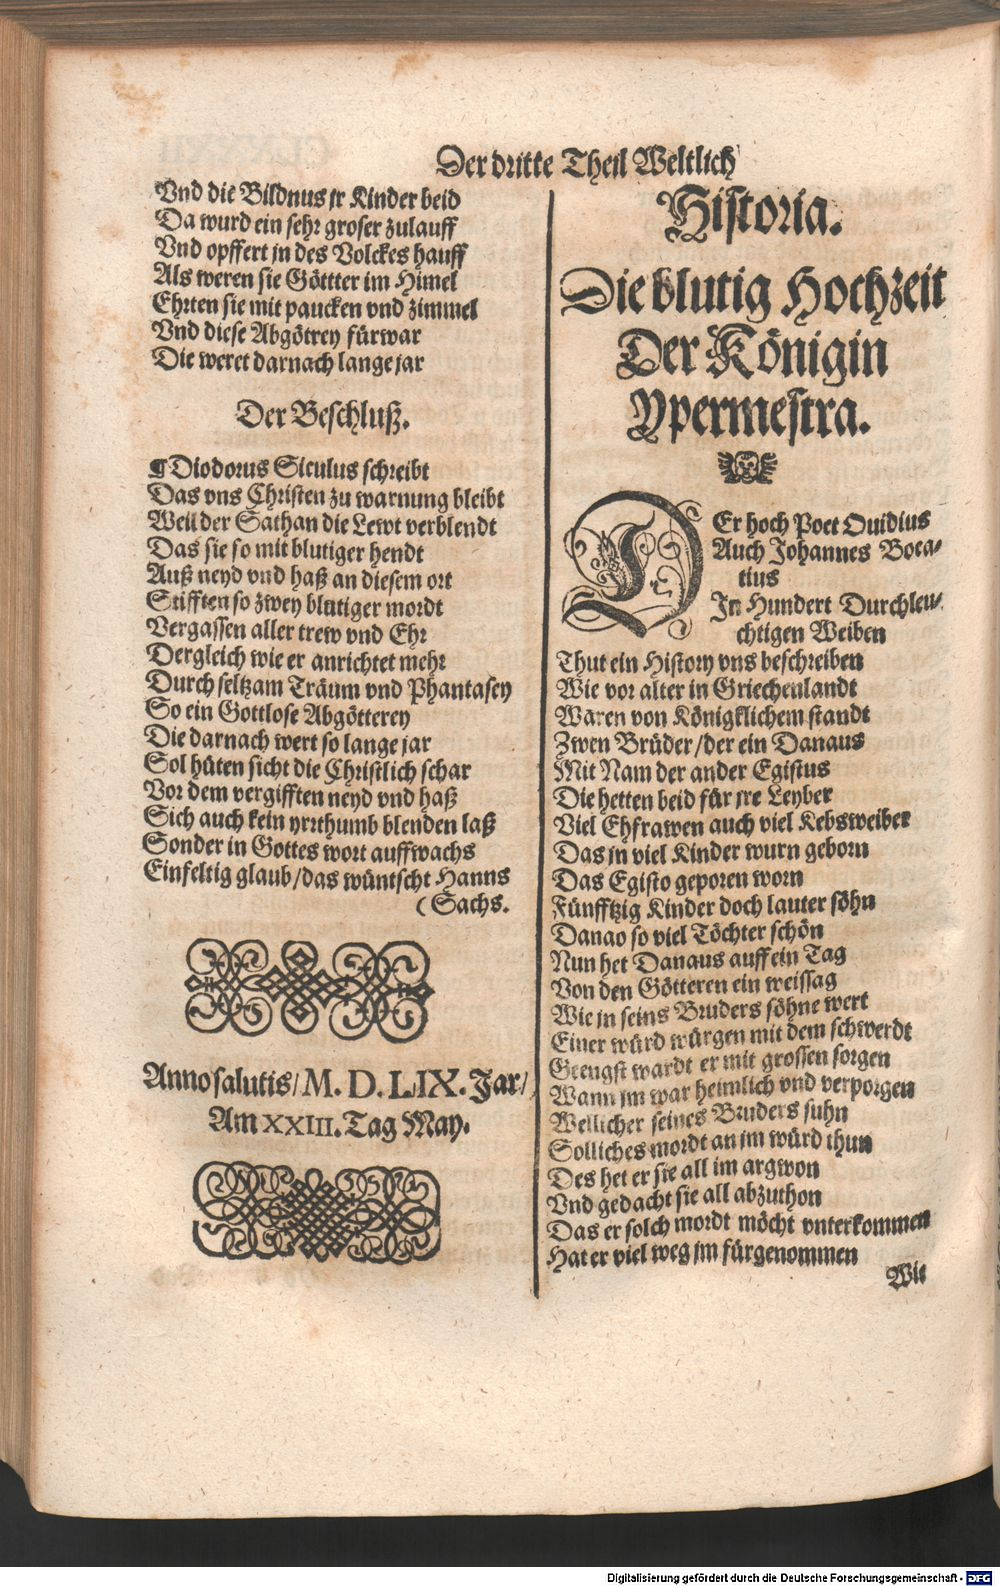 Der dritte Theil Weltlich
Vnd die Bildnus jr Kinder beid
Da wurd ein sehr groser zulauff
Vnd opffert jn des Volckes hauff
Als weren sie Göttter im Himel
Ehrten sie mit paucken vnd zimmel
Vnd diese Abgötrey fürwar
Die weret darnach lange jar
Der Beschluß.
¶ Diodorus Siculus schreibt
Das vns Christen zu warnung bleibt
Weil der Sathan die Lewt verblendt
Das sie so mit blutiger hendt
Auß neyd vnd haß an diesem ort
Stifften so zwey blutiger mordt
Vergassen aller trew vnd Ehr
Dergleich wie er anrichtet mehr
Durch seltzam Träum vnd Phantasey
So ein Gottlose Abgötterey
Die darnach wert so lange jar
Sol hüten sicht die Christlich schar
Vor dem vergifften neyd vnd haß
Sich auch kein yrrthumb blenden laß
Sonder in Gottes wort auffwachs
Einfeltig glaub/das wüntscht Hanns
(Sachs.
Anno salutis/M. D. LIX. Jar/
Am XXIII. Tag May.
Historia.
Die blutig Hochzeit
Der Königin
Ypermestra.
DEr hoch Poet Ouidius
Auch Johannes Boca-
tius
In Hundert Durchleu-
chtigen Weiben
Thut ein History vns beschreiben
Wie vor alter in Griechenlandt
Waren von Königklichem standt
Zwen Brüder/der ein Danaus
Mit Nam der ander Egistus
Die hetten beid für jre Leyber
Viel Ehfrawen auch viel Kebsweiber
Das jn viel Kinder wurn geborn
Das Egisto geporen worn
Fünfftzig Kinder doch lauter söhn
Danao so viel Töchter schön
Nun het Danaus auff ein Tag
Von den Götteren ein weissag
Wie jn seins Bruders söhne wert
Einer würd würgen mit dem schwerdt
Geengst wardt er mit grossen sorgen
Wann jm war heimlich vnd verporgen
Wellicher seines Bruders suhn
Solliches mordt an jm würd thun
Des het er sie all im argwon
Vnd gedacht sie all abzuthon
Das er solch mordt möcht vnterkommen
Hat er viel weg jm fürgenommen
Wie
Digitalisierung gefördert durch die Deutsche Forschungsgemeinschaft - DFG